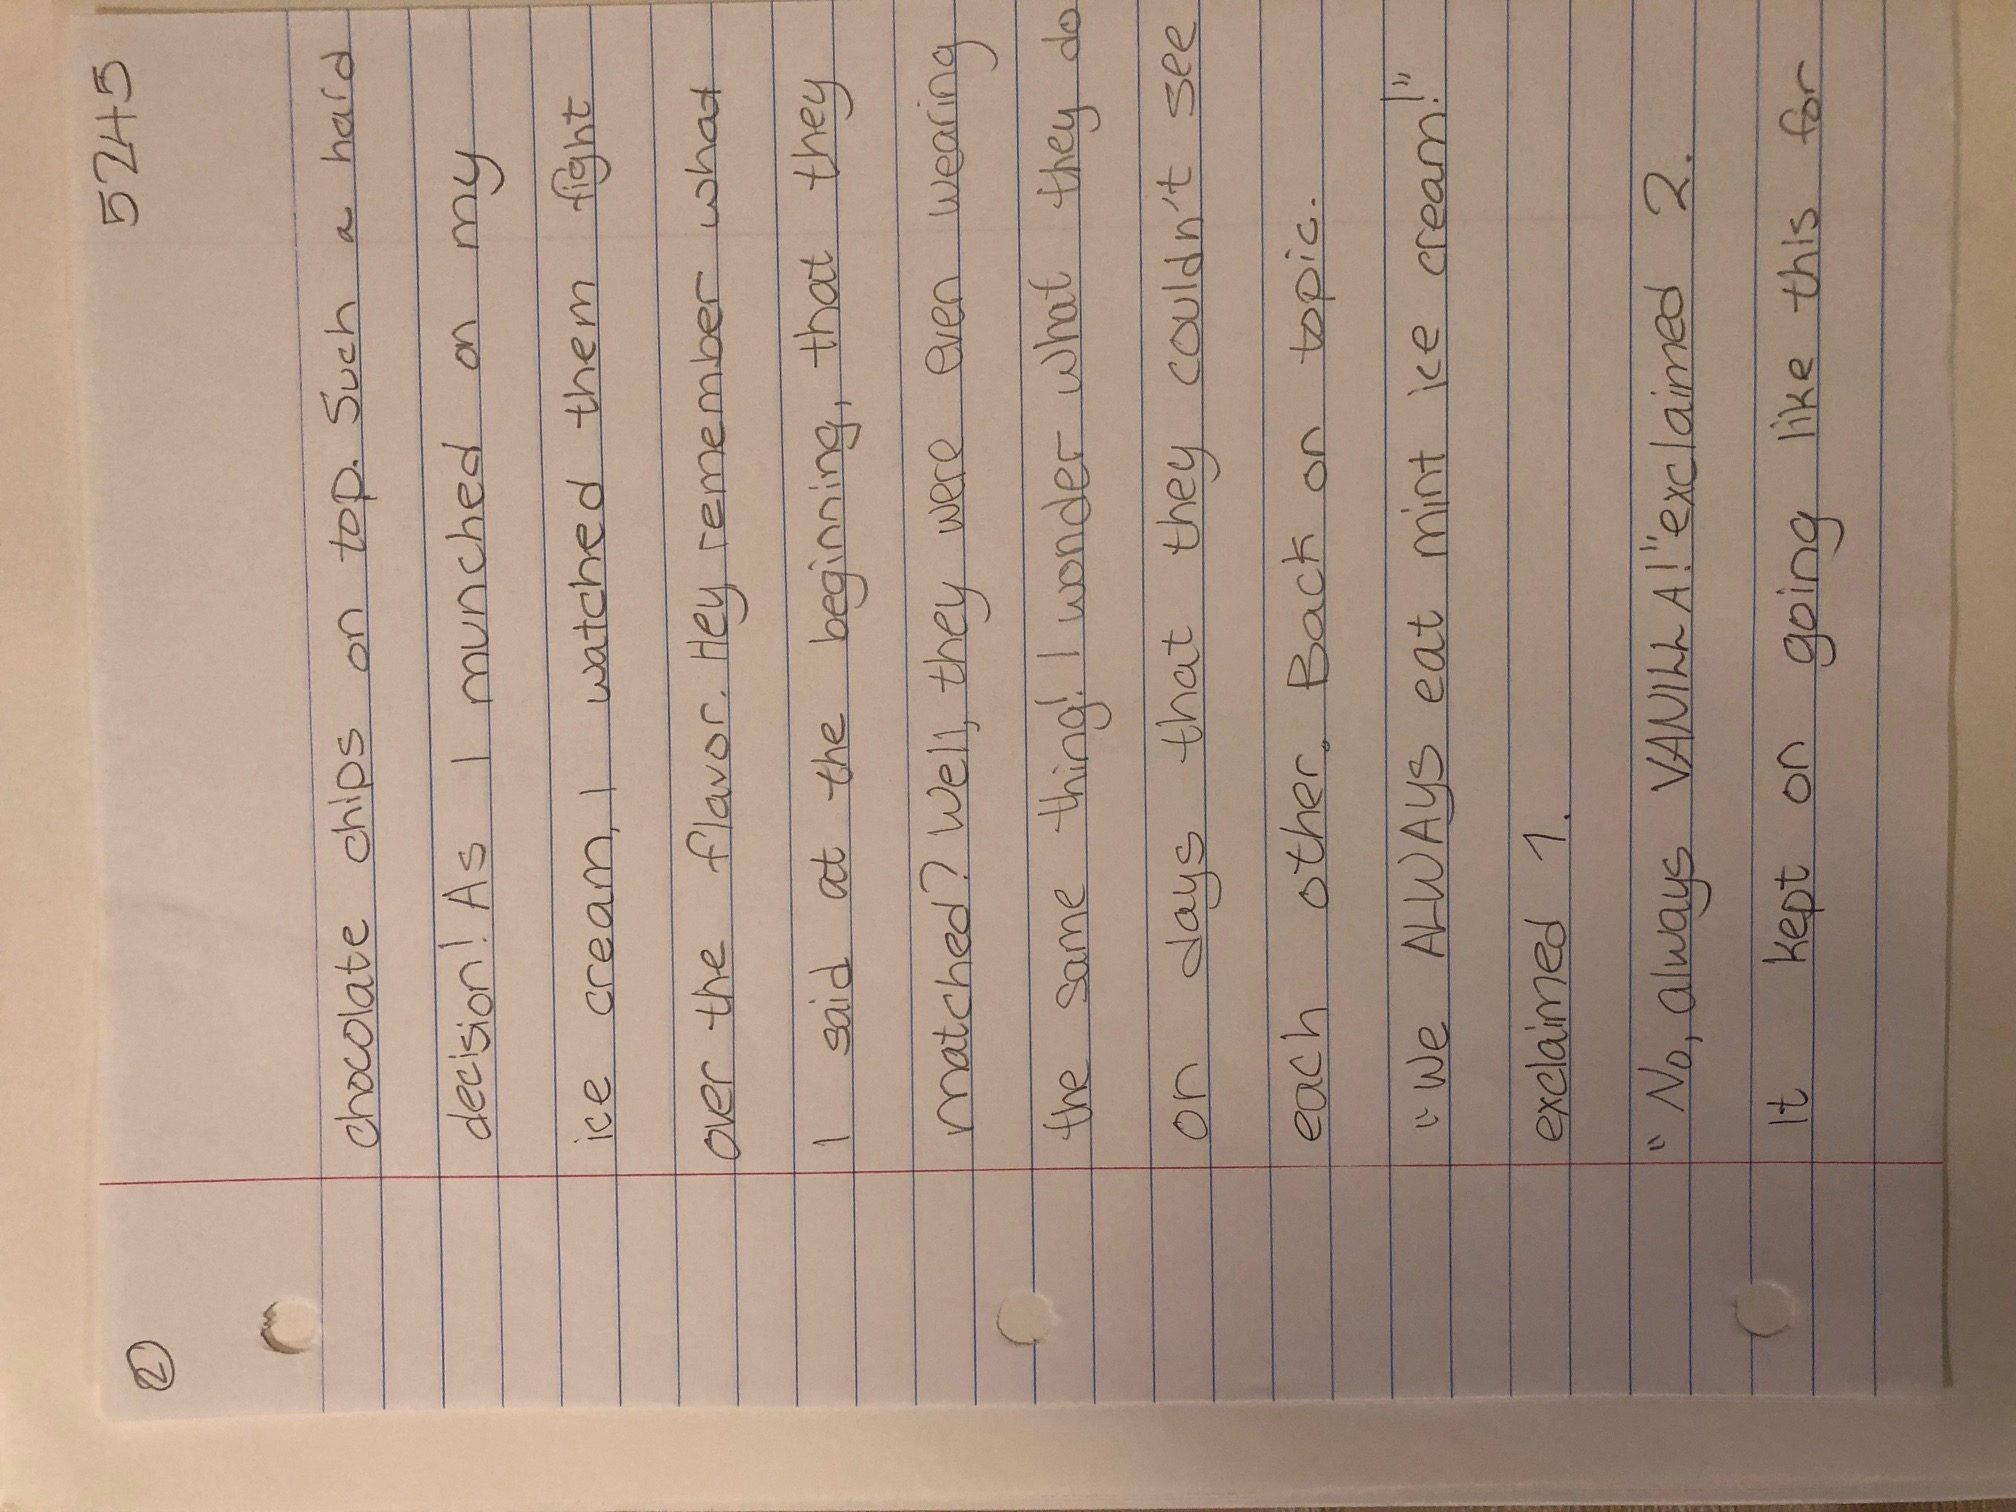 2
5245
chocolate chips on top. Such a hard
decision! As I munched on my
ice cream, I watched them fight
over the flavor. Hey remember what
I said at the beginning, that they
matched? Well, they were even wearing
the same thing! I wonder what they do
on days that they couldn't see
each other. Back on topic.
"We ALWAYS eat mint ice cream!"
exclaimed 1.
"No, always VANILLA!" exclaimed 2.
It kept on going like this for